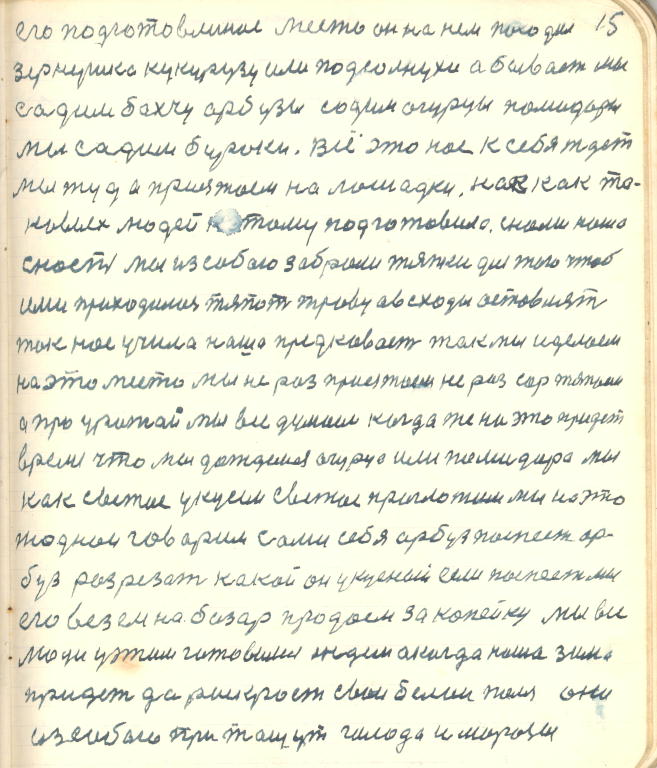 15
его подготовлиное место он на нем посодил
зернушка кукурузу или подсолнухи а бывает мы
садим бахчу арбузы содим огурцы помидоры
мы садим буроки. Всё это нас к себя ждет
мы туда приятжаем на лошадки, как как та-
ковых людей к тому подготовило, снами наша
сность мы из собою забрали тяпки для того чтоб
ими приходился тяпот траву а всходы оставлят
так нас учила наша предковаст так мы и делаем
на это место мы не раз приезжаем не раз сар тяпаем
а про урожай мы все думаем когда же на это придет
время что мы дождемся огурца или помидора мы
как светое укусем светое проглотим мы на это
жодном говорим сами себя арбуз поспеет ар-
буз розрезат какой он укусный если поспеет мы
его везем на базар продаем за копейку мы все
люди у жизни готовимся ждем а когда наша зима
придет да роскроет свои белыи поля они
изсобою притащут голода и морозы